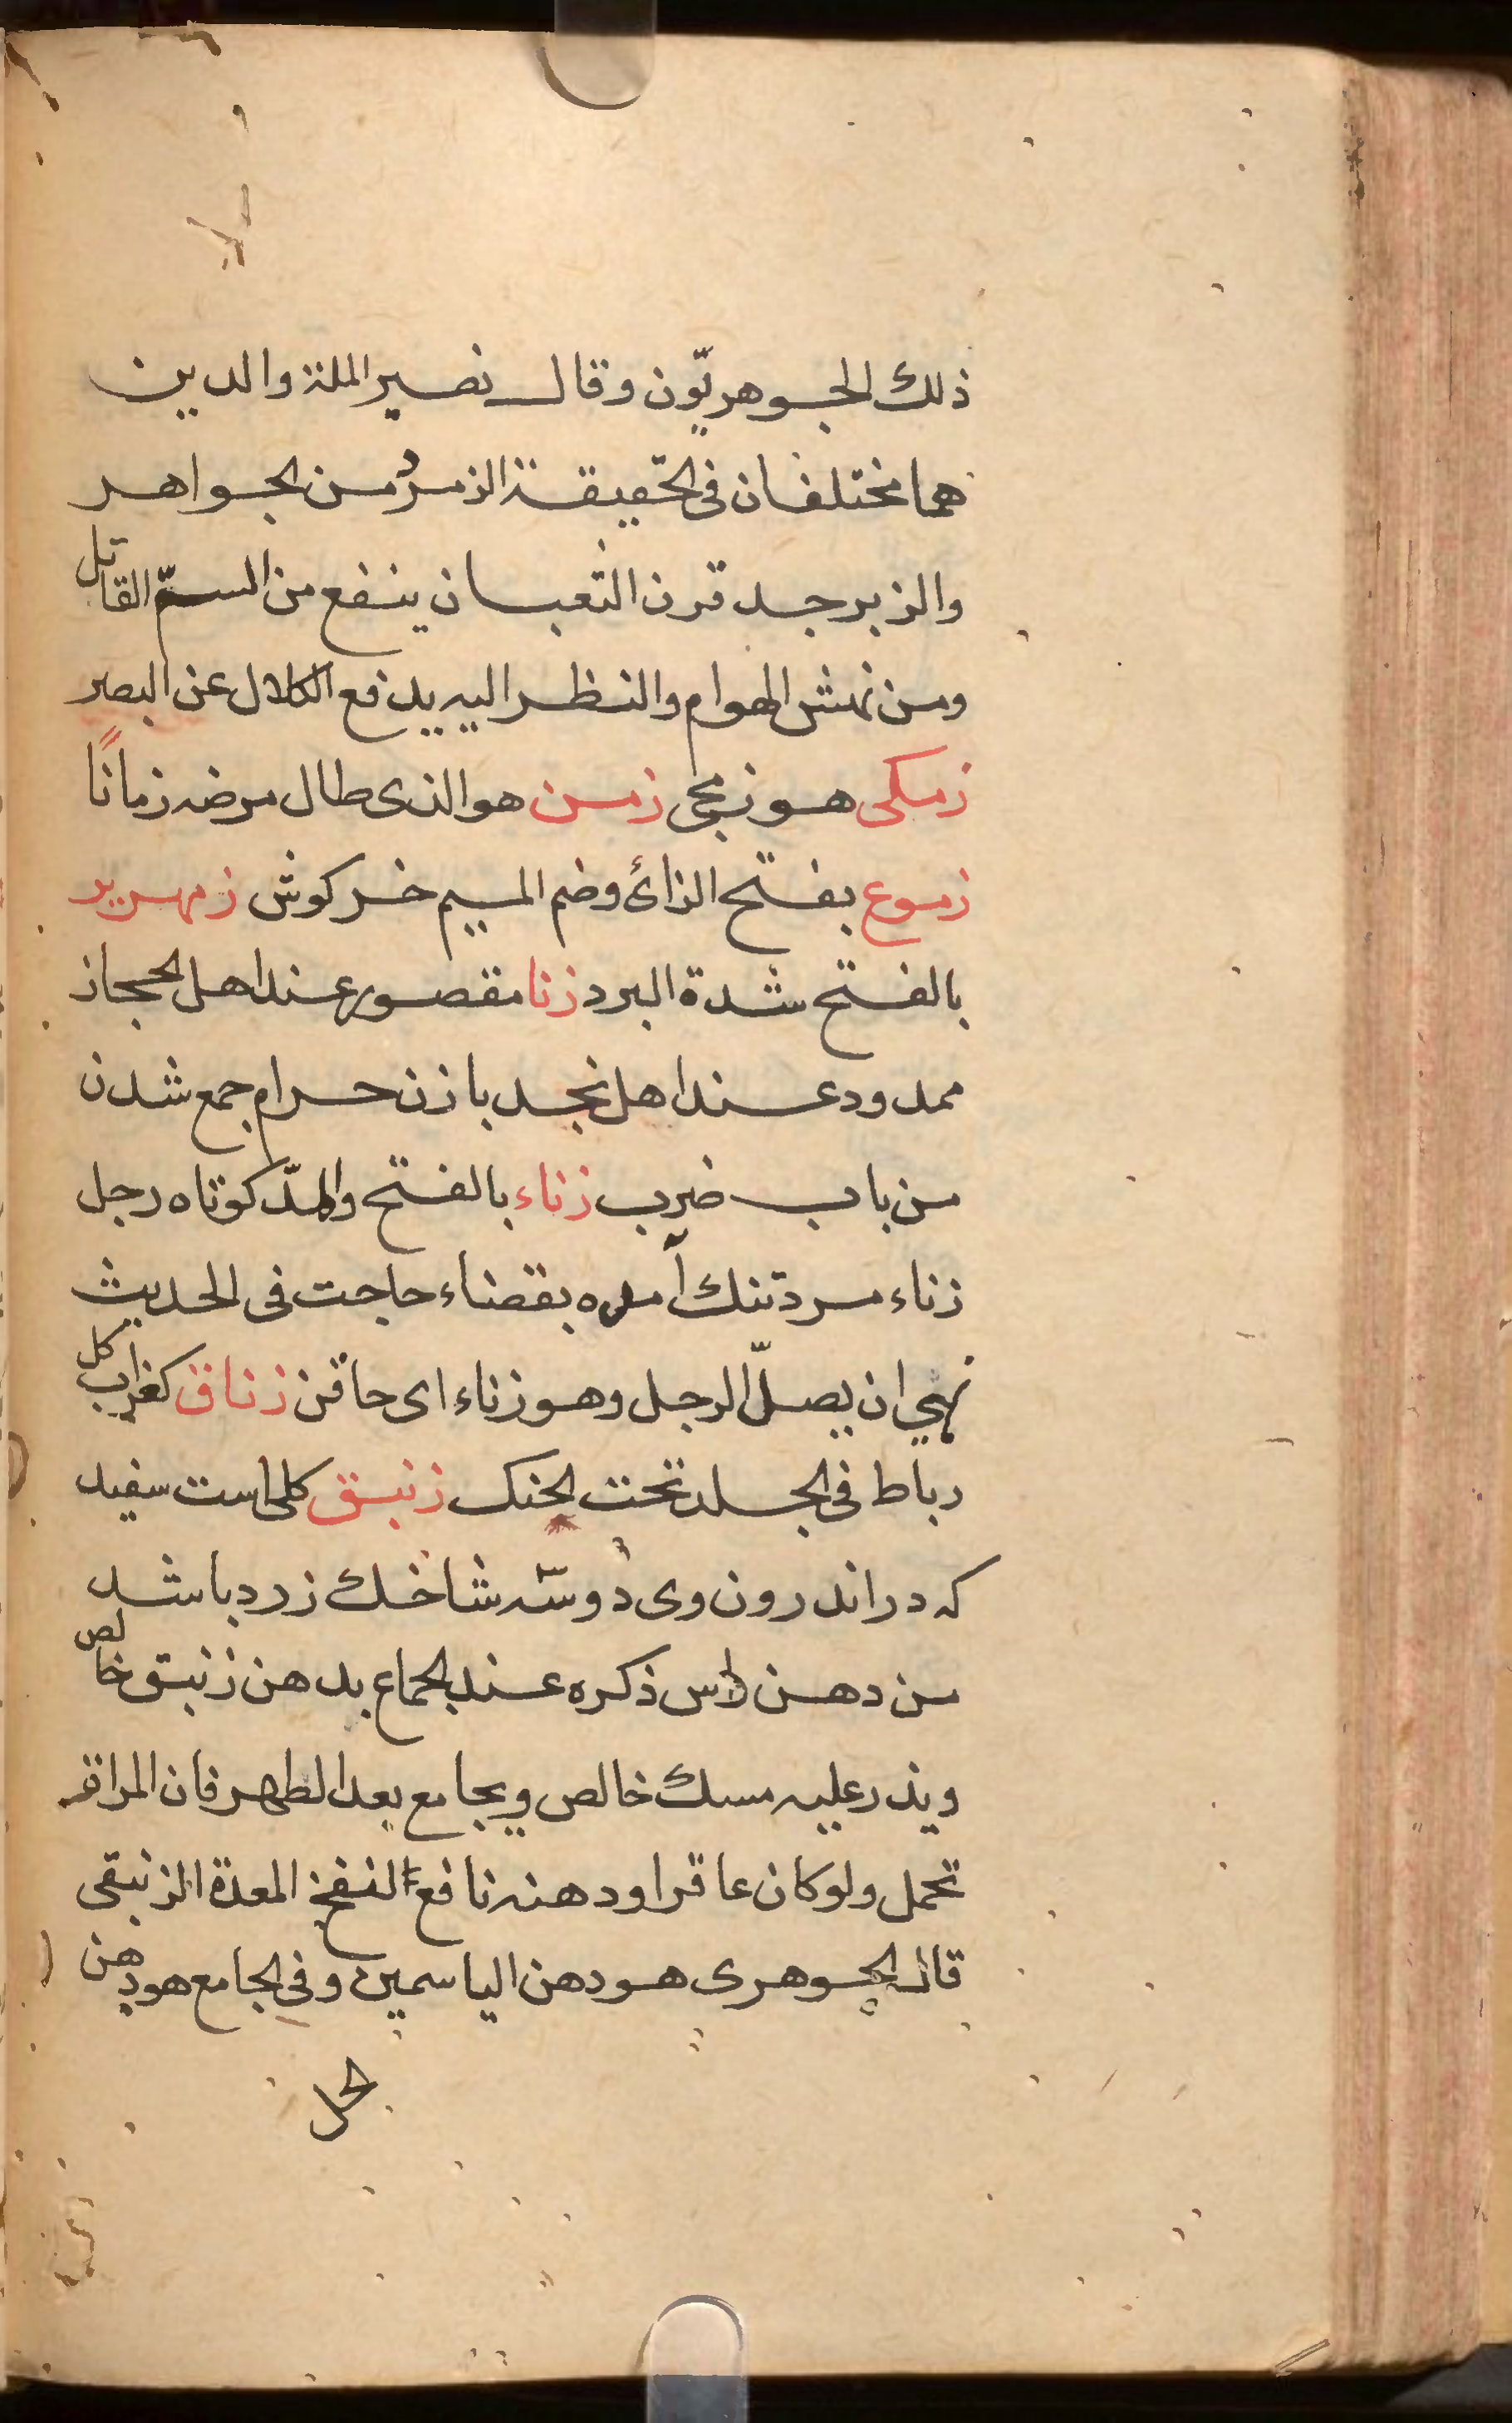 ذلك الجوهريّون وقال نصير الملة والدين
هما مختلفان فى الحقيقة الزمرد من الجواهر
والزبرجد قرن الثعبان ينفع من السمّ القاتل
ومن نهش الهوام والنظر اليه يدفع الكلال عن البصر
زمكى هو زمجى زمن هو الذى طال مرضه زمانًا
زموع بفتح الزائ وضم الميم خركوش زمهرير
بالفتح شدة البرد زنا مقصور عند اهل الحجاز
ممدود عند اهل نجد با زن حرام جمع شدن
من باب ضرب زناء بالفتح والمدّ كوتاه رجل
زناء مرد تنك آمده بقضاء حاجت فى الحديث
نهي ان يصلّ الرجل وهو زناء اى حاقن زناق كغراب كل
رباط فى الجلد تحت الحنك زنبق كلى است سفيد
كه در اندرون وى دو سه شاخك زرد باشد
من دهن راس ذكره عند الجماع بدهن زنبق خالص
ويذر عليه مسك خالص ويجامع بعد الطهر فان المراة
تحمل ولو كان عاقرا ودهنه نافع لنفخ المعدة الزنبقى
قال الجوهرى هو دهن الياسمين وفى الجامع هو دهن
الحل